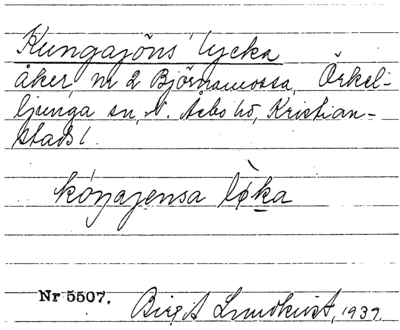 Kungajöns' lycka
åker, nr 2 Björnamossa, Örkel-
ljunga sn, N. Åsbo hd, Kristian-
stads l.
kóŋajensa løka
Nr 5507.
Birgit Lundkvist, 1937.